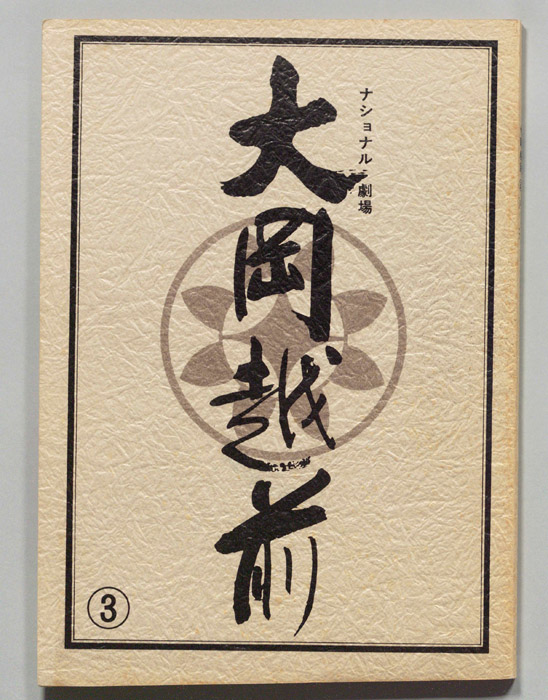 ナショナル劇場
大岡越前
③